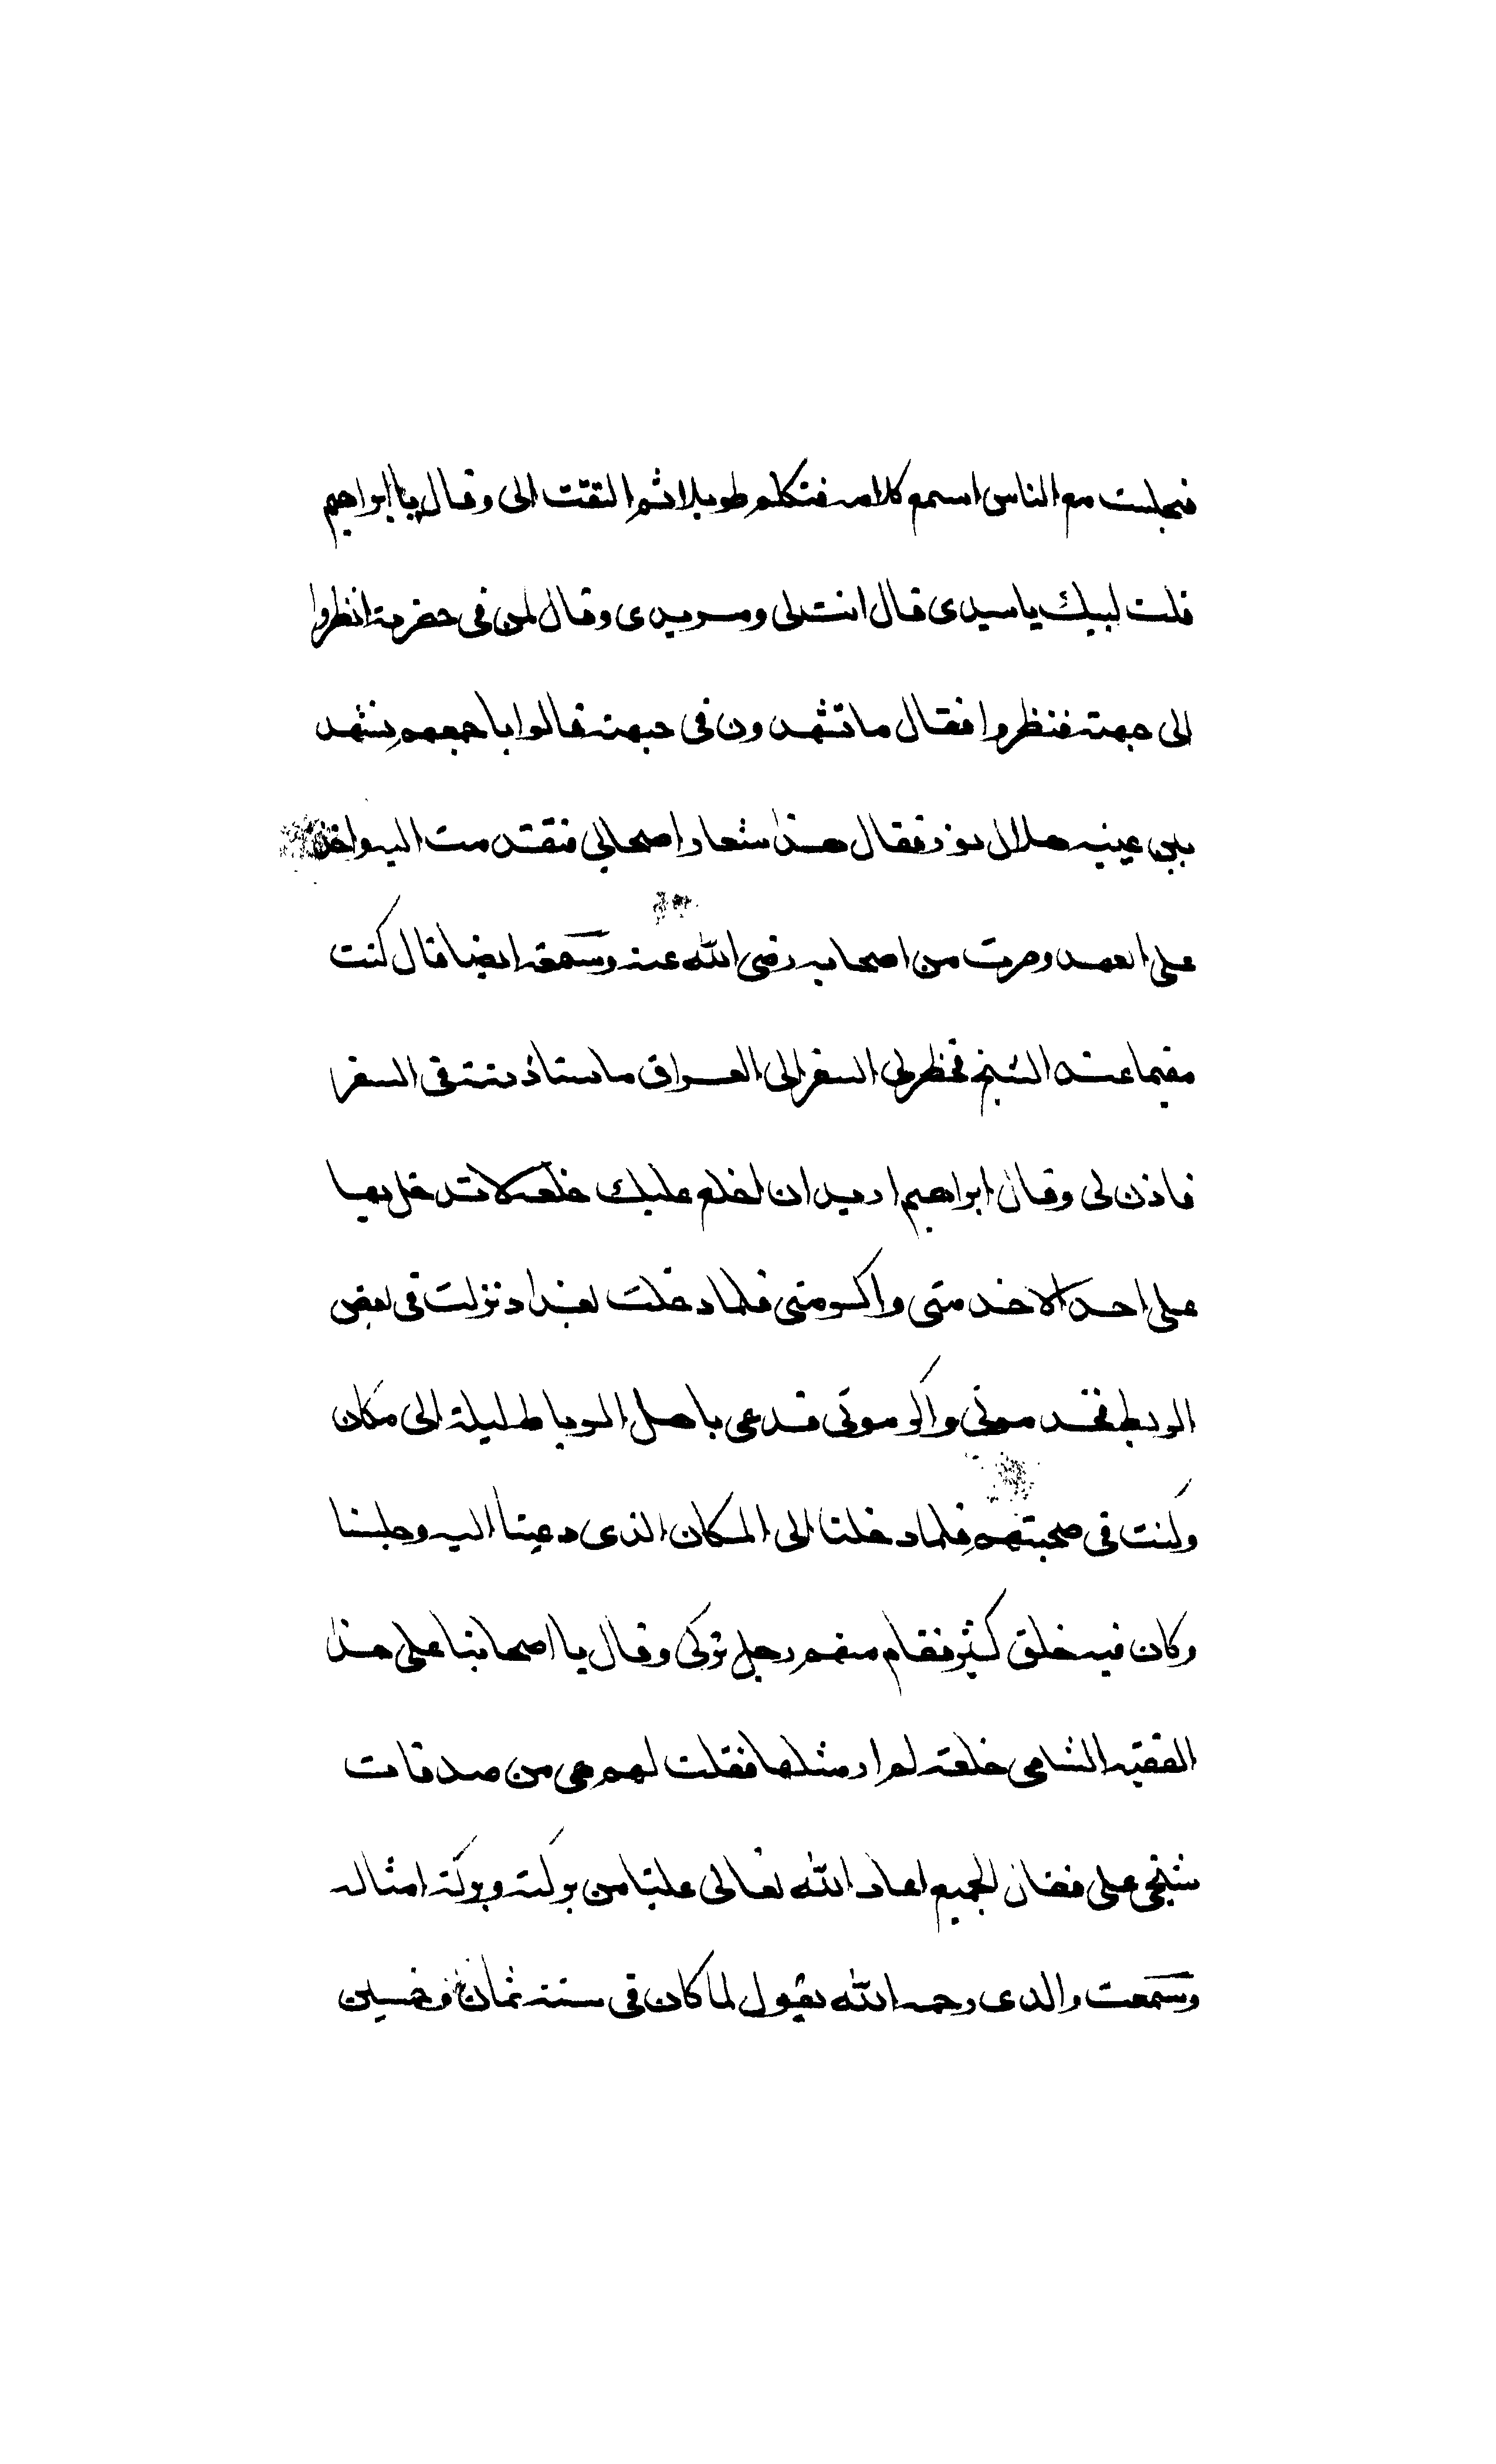 فجلست مع الناس اسمع كلامه فتكلم طويلا ثم التفت الى وقال يا ابراهيم
قلت لبيك يا سيدى قال انت لى ومريدى وقال لمن فى حضرته انظروا
الى جبهته فنظروا فقال ما تشهدون فى جبهته قالوا باجمعهم نشهد
بين عينيه هلال نور فقال هذا شعار اصحابى فتقدمت اليه واخذ
على العهد وصرت من اصحابه رضى الله عنه وسمعته ايضا قال كنت
مقيما عند الشيخ فخطر لى السفر الى العراق فاستاذنته فى السفر
فاذن لى وقال ابراهيم اريد ان اخلع عليك خلعه لا تدخل بها
على احد الا خدمتى واكرمتى فلما دخلت بغداد نزلت فى بعض
الربط فخدمونى واكرمونى فدعى باهل الرباط ليلة الى مكان
وكنت فى صحبتهم فلما دخلنا الى المكان الذى دعينا اليه وجلسنا
وكان فيه خلق كثير فقام منهم رجل تركى وقال يا اصحابنا على هذا
الفقيه الشامى خلعة لم ار مثلها فقلت لهم هى من صدقات
شيخى على فقال الجميع اعاد الله تعالى علينا من بركته وبركة امثاله
وسمعت والدى رحمه الله يقول لما كان فى سنة ثمان وخمسين